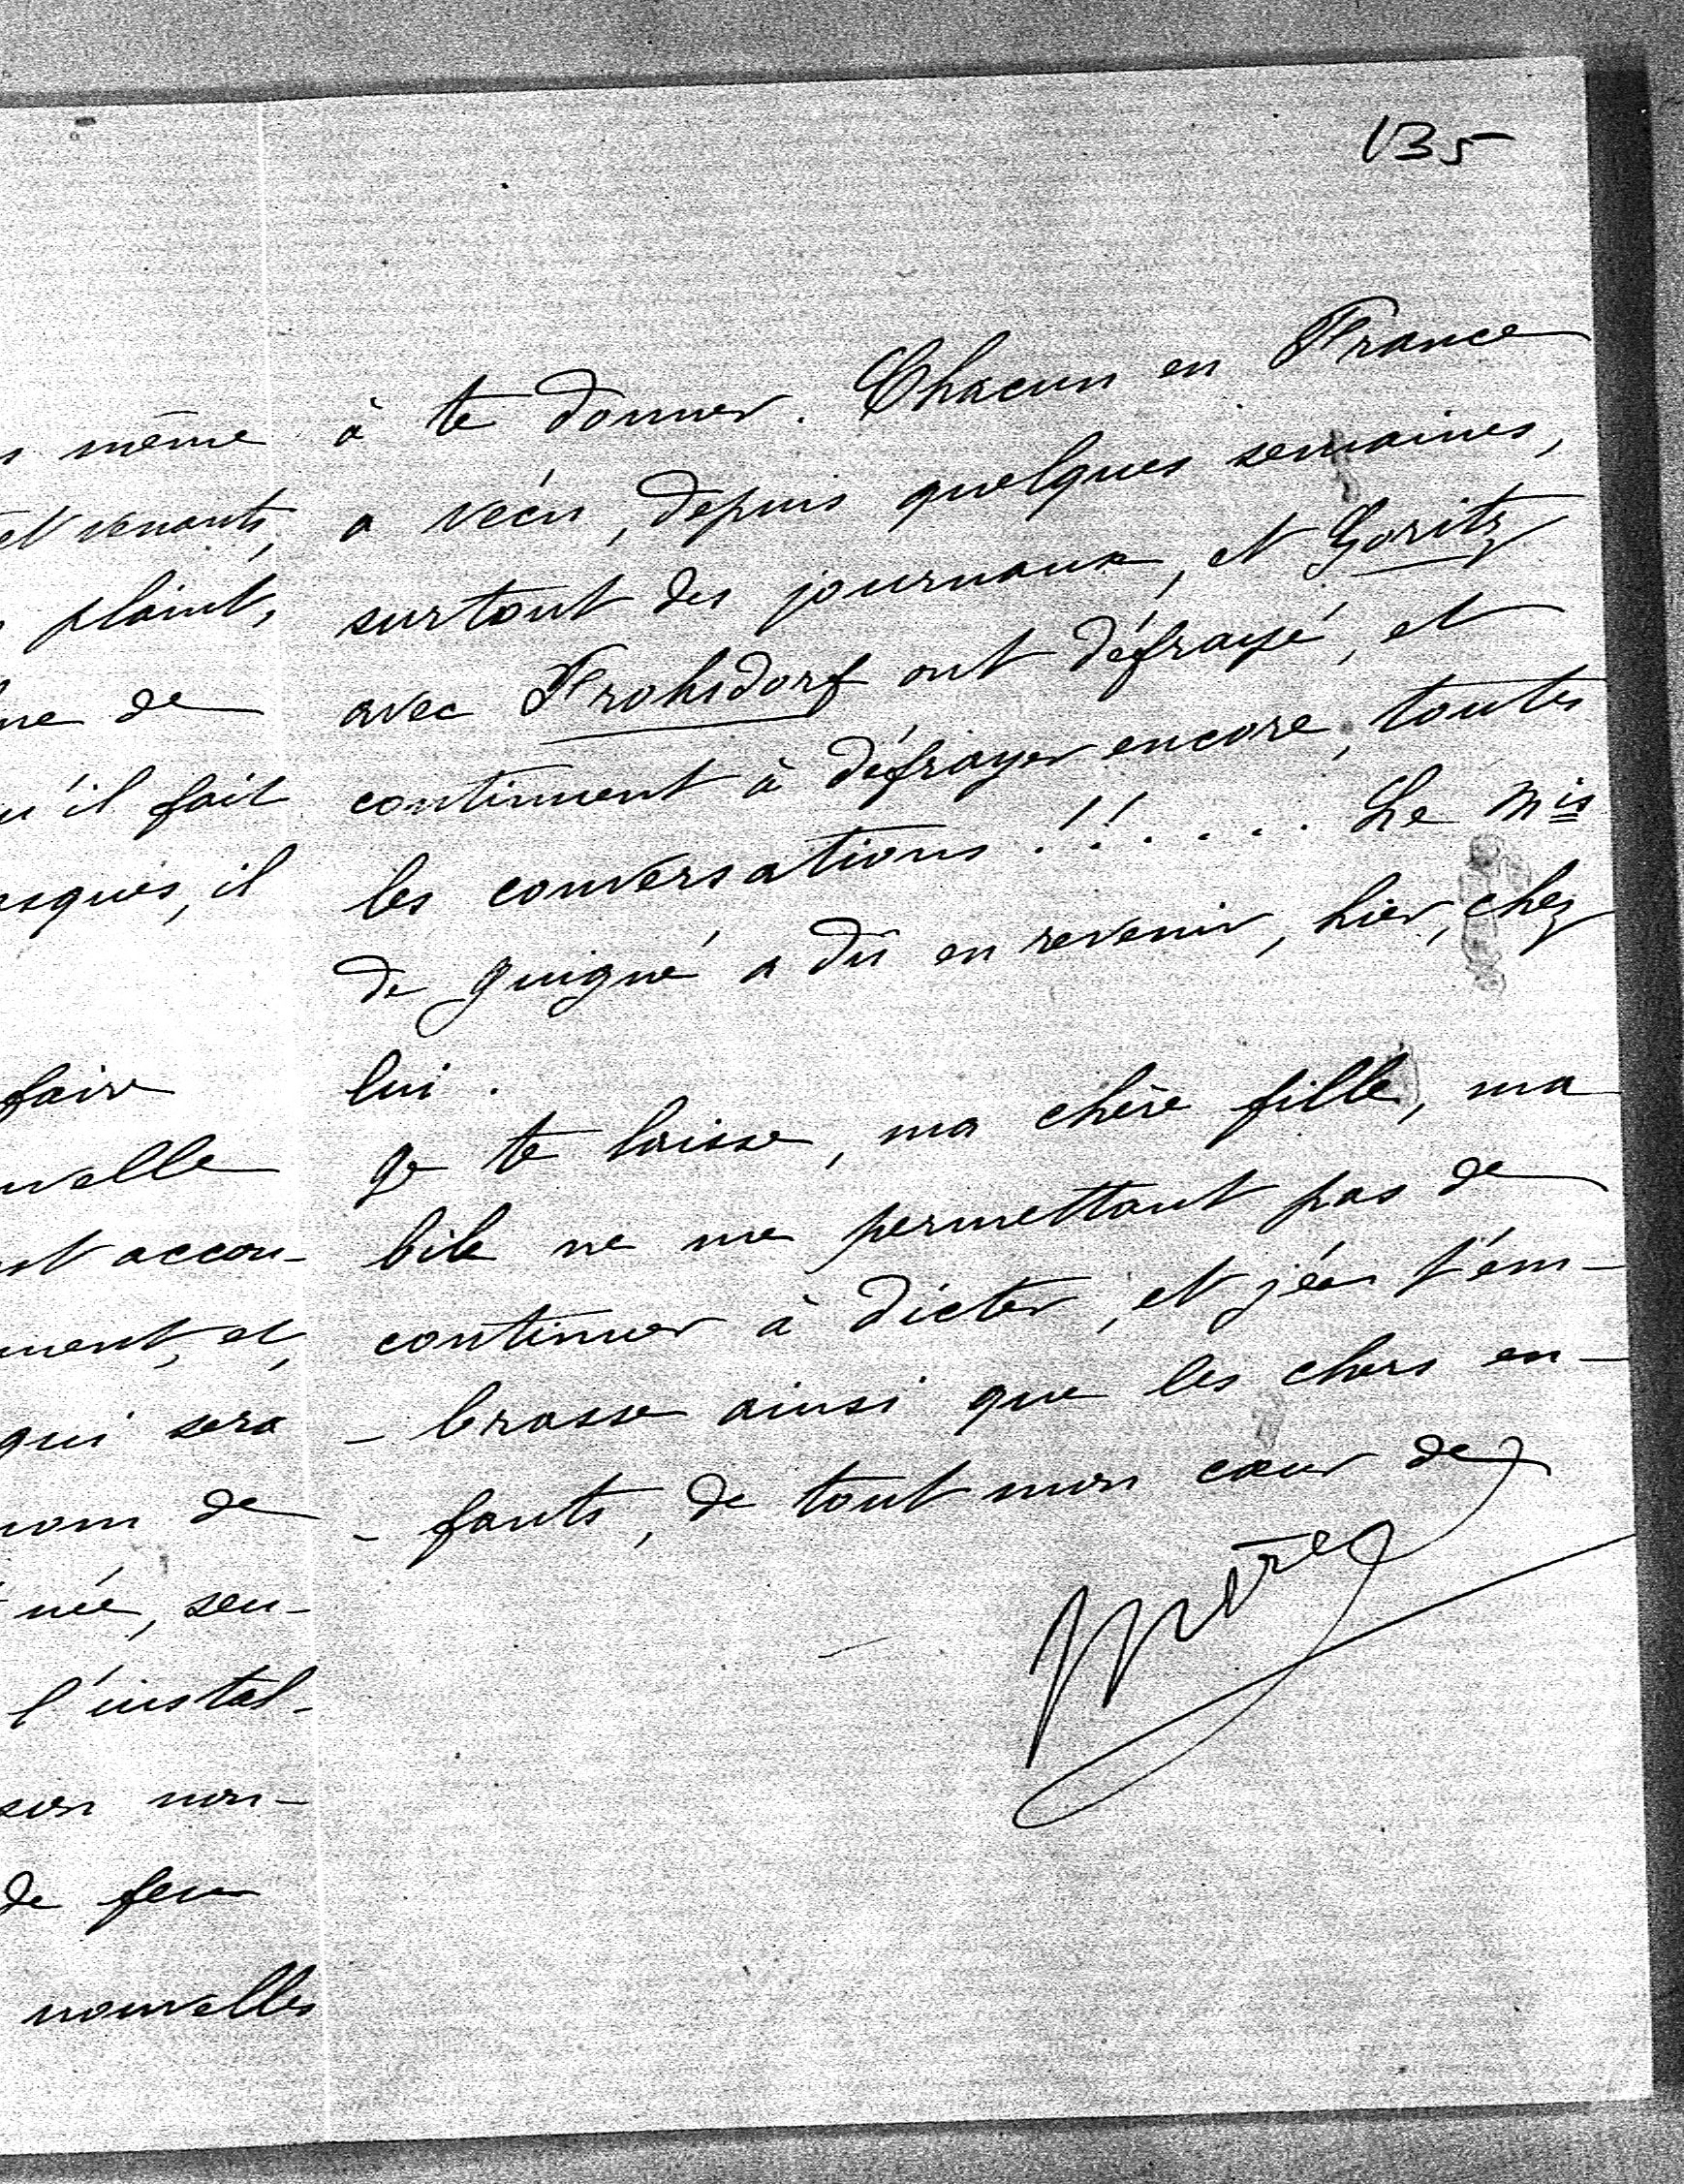 135
s même
et venants,
plaint,
ne de
u'il fait
asqués, il
faire
uvelle
st accou-
ment, et,
qui sera
nom de
née, seu-
l'instal-
son nou-
de feu
nouvelles
à te donner. Chacun en France
a vécu, depuis quelques semaines,
surtout des journaux, et Goritz
avec Frohsdorf ont défrayé, et
continuent à défrayer encore, toutes
les conversations !!..... Le Mis
de Guigné a dû en revenir, hier, chez
lui.
Je te laisse, ma chère fille, ma
bile ne me permettant pas de
continuer à dicter, et je t'em-
- brasse ainsi que les chers en-
- fants, de tout mon cœur de
mère